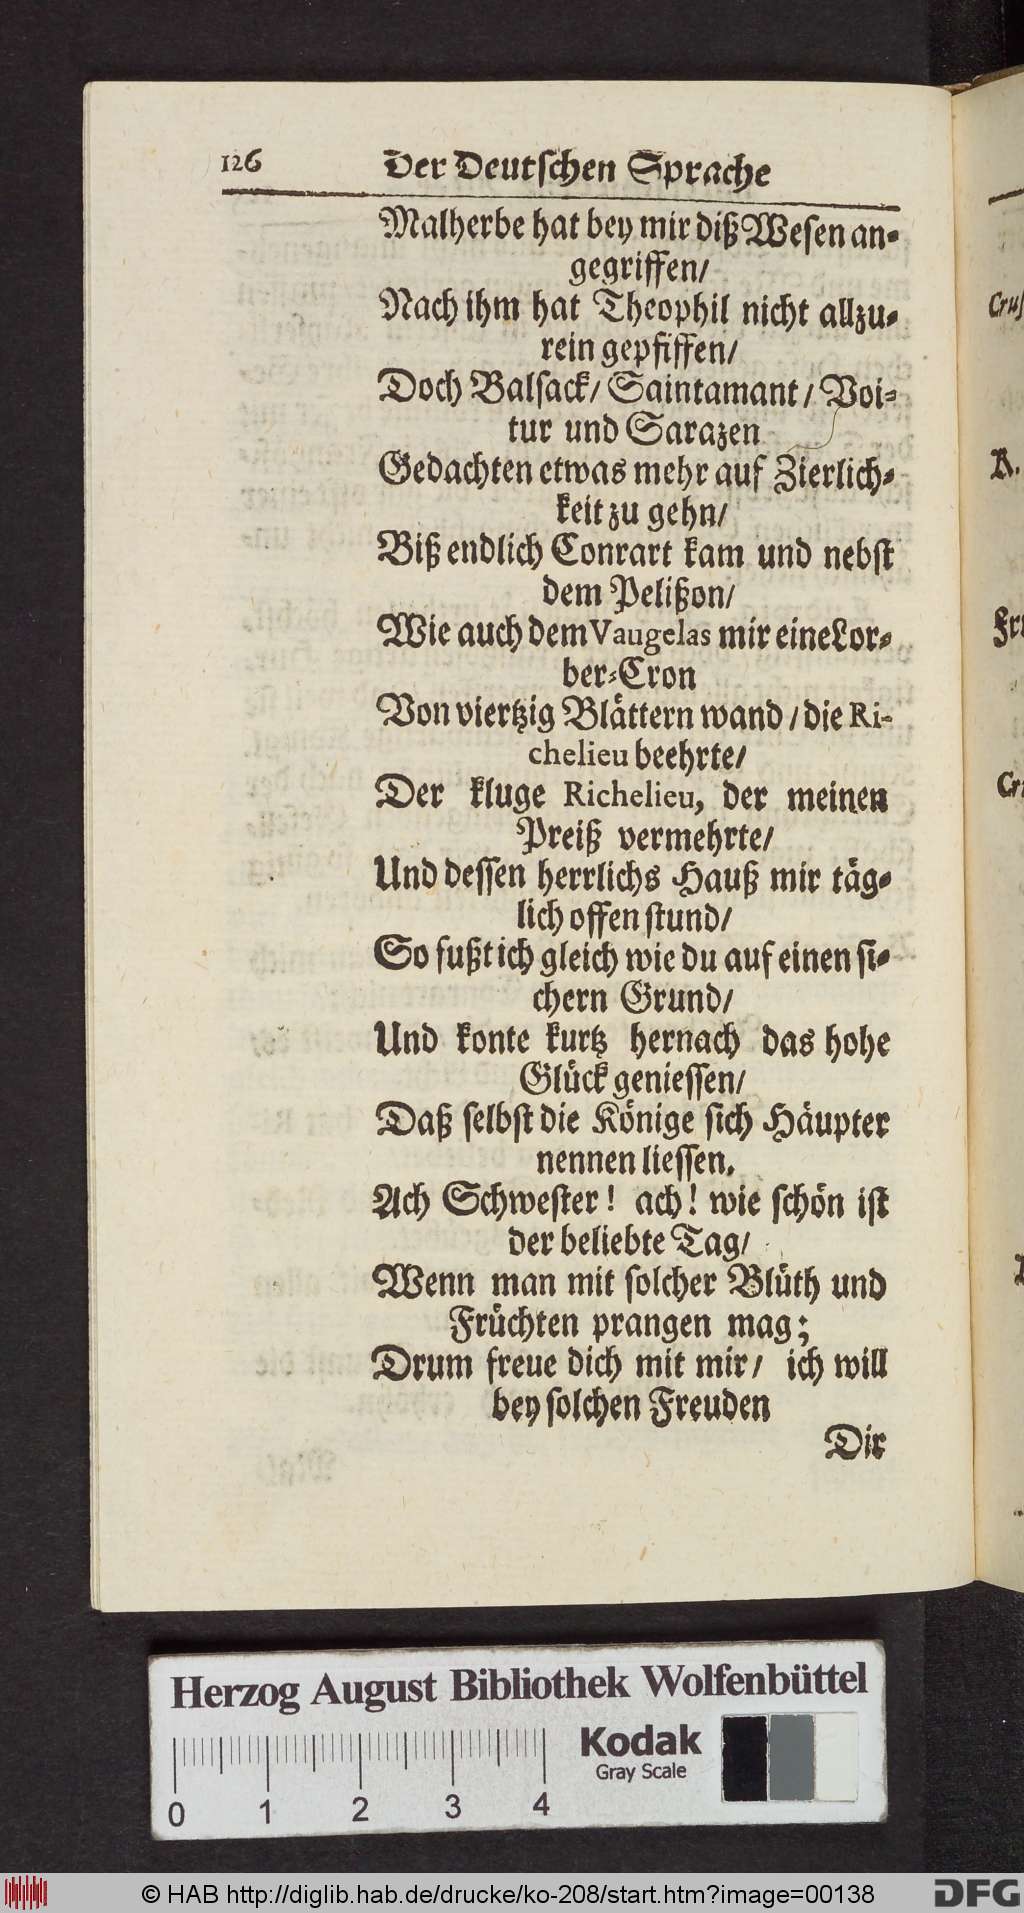 126 Der Deutschen Sprache
Malherbe hat bey mir diß Wesen an-
gegriffen/
Nach ihm hat Theophil nicht allzu-
rein gepfiffen/
Doch Balsack/ Saintamant/ Voi-
tur und Sarazen
Gedachten etwas mehr auf Zierlich-
keit zu gehn/
Biß endlich Conrart kam und nebst
dem Pelißon/
Wie auch dem Vaugelas mir eine Lor-
ber-Cron
Von viertzig Blättern wand/ die Ri-
chelieu beehrte/
Der kluge Richelieu, der meinen
Preiß vermehrte/
Und dessen herrlichs Hauß mir täg-
lich offen stund/
So fußt ich gleich wie du auf einen si-
chern Grund/
Und konte kurtz hernach das hohe
Glück geniessen/
Daß selbst die Könige sich Häupter
nennen liessen.
Ach Schwester! ach! wie schön ist
der beliebte Tag/
Wenn man mit solcher Blüth und
Früchten prangen mag;
Drum freue dich mit mir/ ich will
bey solchen Freuden
Dir
Herzog August Bibliothek Wolfenbüttel
Kodak
Gray Scale
0 1 2 3 4
© HAB http://diglib.hab.de/drucke/ko-208/start.htm?image=00138
DFG